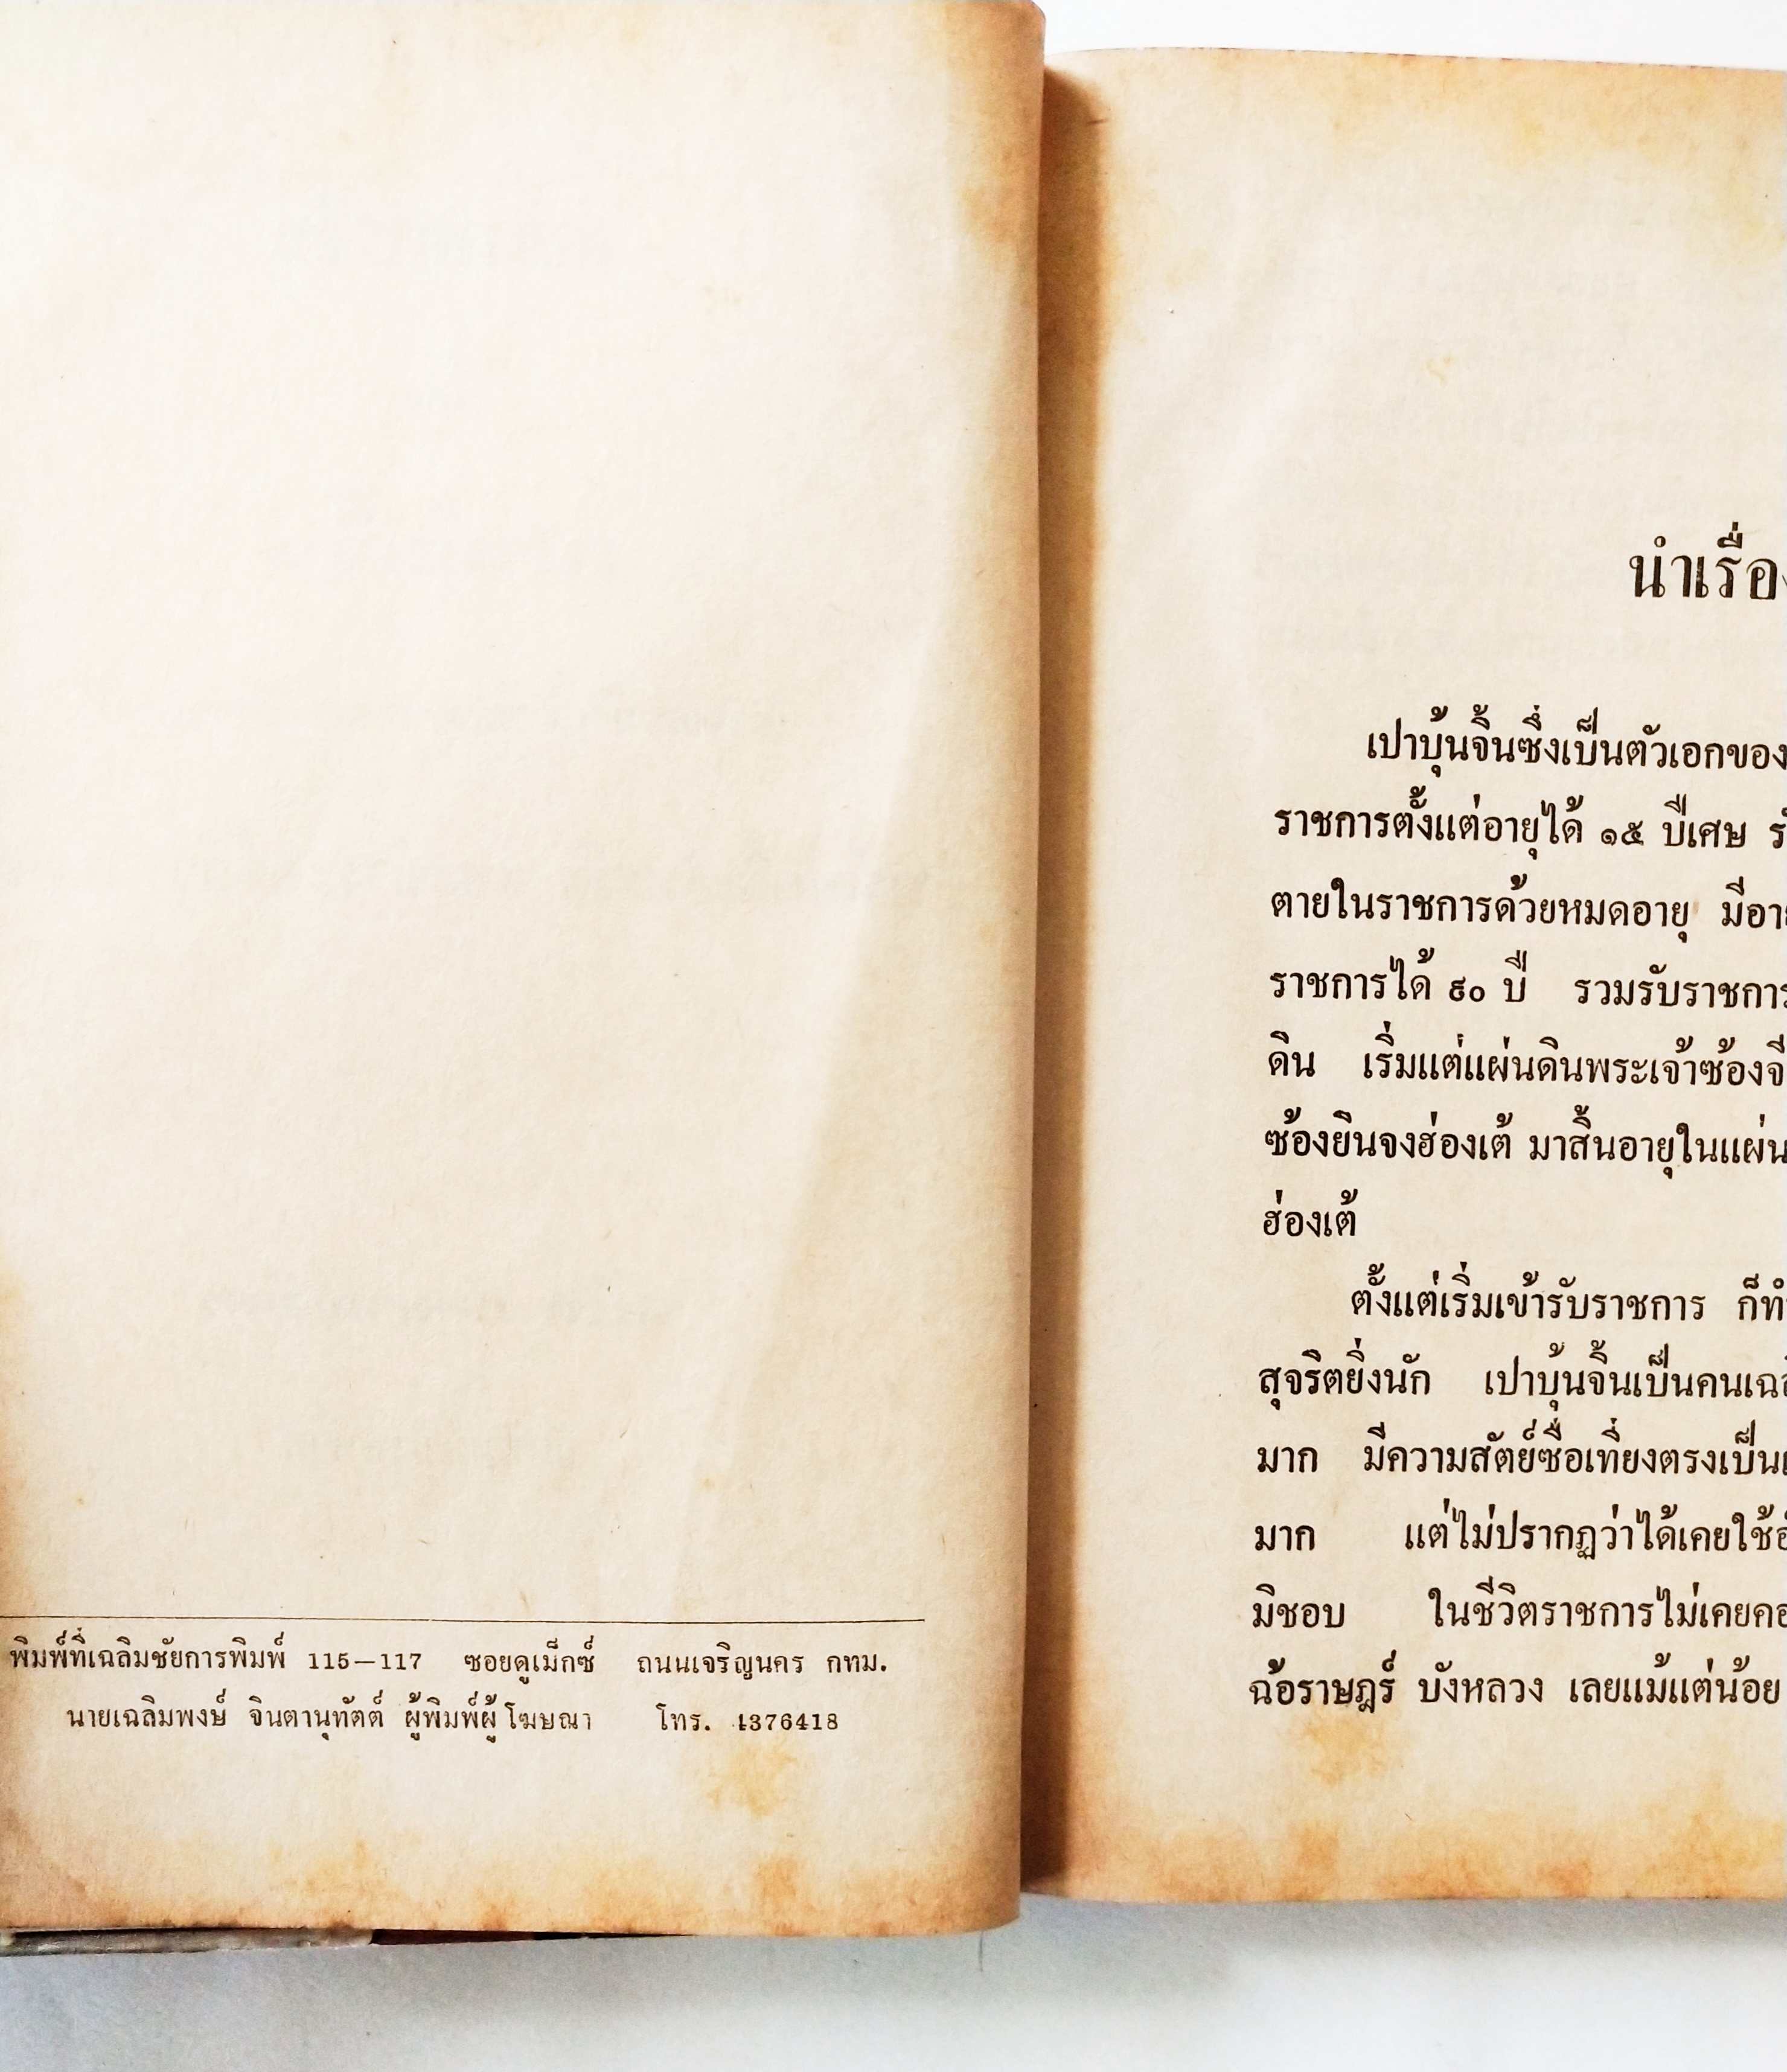 พิมพ์ที่เฉลิมชัยการพิมพ์ 115—117 ซอยดูเม็กซ์ ถนนเจริญนคร กทม.
นายเฉลิมพงษ์ จินตานุทัตต์ ผู้พิมพ์ผู้โฆษณา โทร. 4376418
นำเรื่อง
เปาบุ้นจิ้นซึ่งเป็นตัวเอกของ
ราชการตั้งแต่อายุได้ ๑๕ ปีเศษ
ตายในราชการด้วยหมดอายุ
ราชการได้ ๙๐ ปี รวมรับราชการ
ดิน เริ่มแต่แผ่นดินพระเจ้าซ้อง
ซ้องยินจงฮ่องเต้ มาสิ้นอายุในแผ่น
ฮ่องเต้
ตั้งแต่เริ่มเข้ารับราชการ ก็
สุจริตยิ่งนัก เปาบุ้นจิ้นเป็นคน
มาก มีความสัตย์ซื่อเที่ยงตรงเป็น
มาก แต่ไม่ปรากฏว่าได้เคยใช้
มิชอบ ในชีวิตราชการไม่เคย
ฉ้อราษฎร์ บังหลวง เลยแม้แต่น้อย